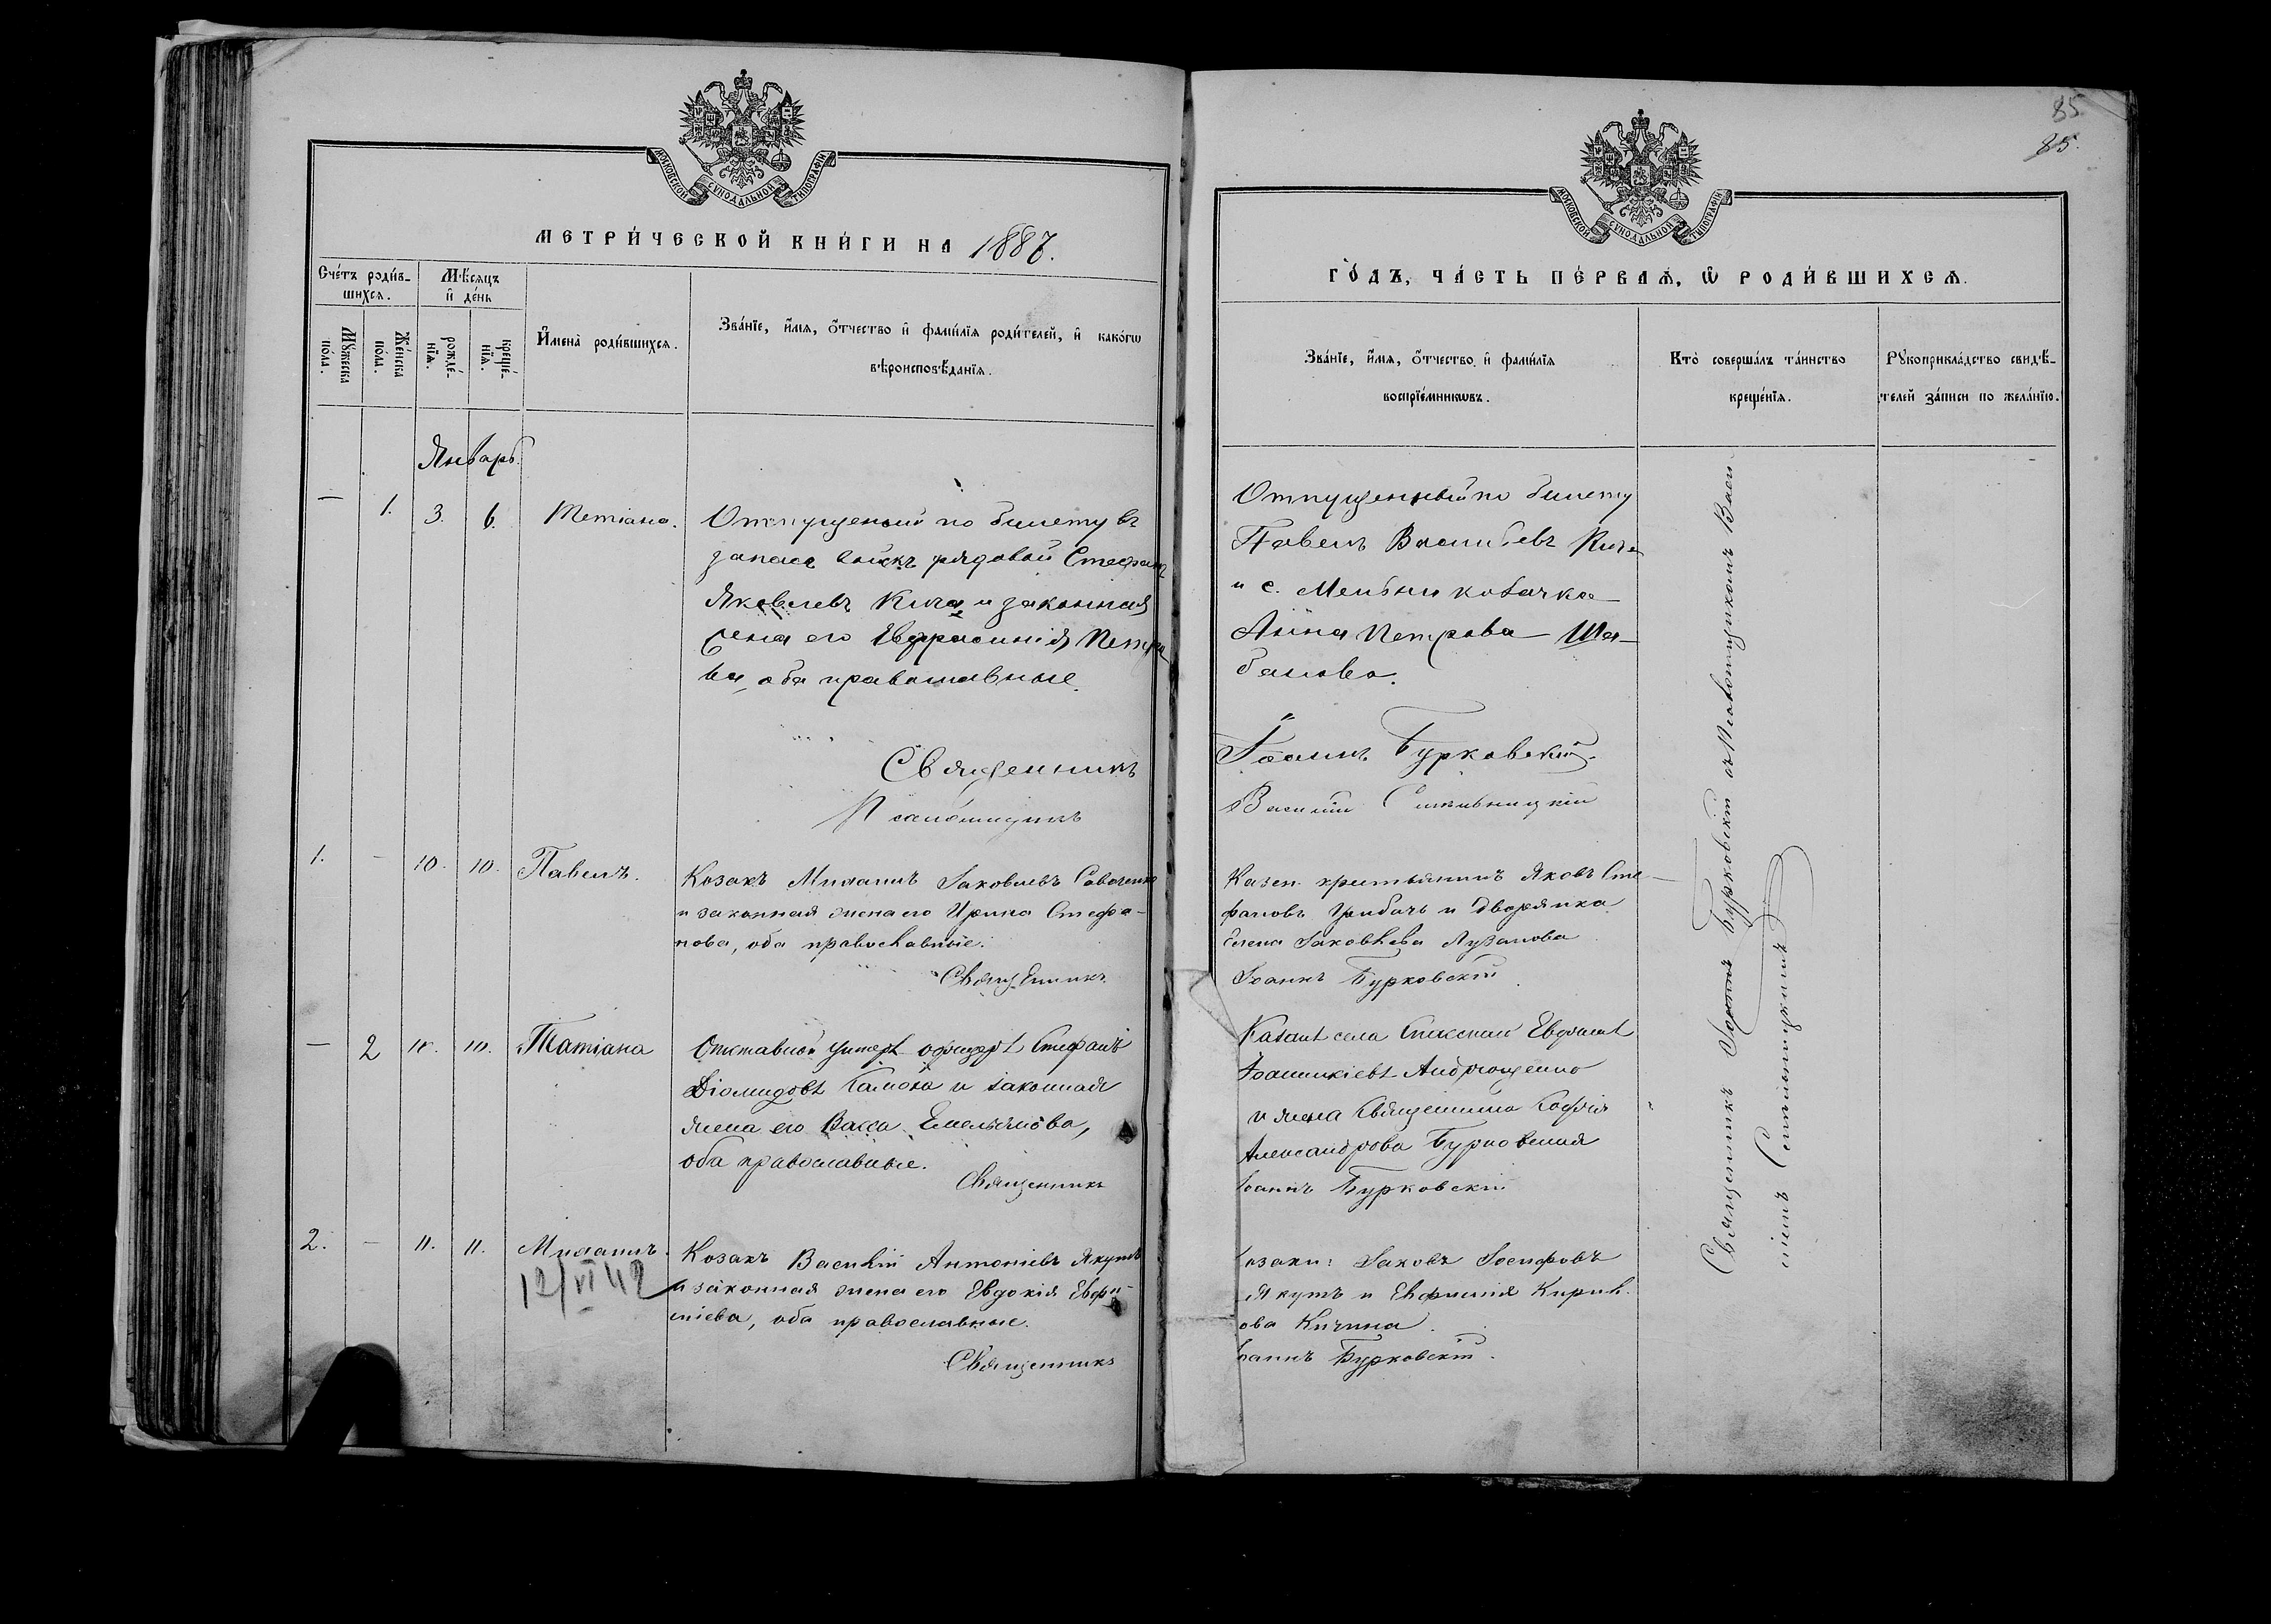 МОСКОВСКОЙ СѴНОДАЛЬНОЙ ТИПОГРАФІИ
МЕТРИ́ЧЕСКОЙ КНИ́ГИ НА 1887.
Сче́тъ роди́в-
шихся.
Мѣ́сяцъ
и҆ де́нь
Мꙋ́жеска
по́ла.
Же́нска
по́ла.
рожде́-
нїѧ.
креще́-
нїѧ.
И҆мена̀ роди́вшихся.
Зва́нїе, и҆́мѧ, ѻ҆́тчество и҆ фами́лїѧ роди́телей, и҆ како́гѡ
вѣроисповѣ́данїѧ.
Январь.
— 1. 3. 6. Татіана.
Отпущеный по билету въ
запасъ войскъ рядовой Стефанъ
Яковлевъ Кича и законная
жена его Евфросинія Петро
ва, оба православные.
Священникъ
Псаломщикъ
1. — 10. 10. Павелъ.
Козакъ Михаилъ Іаковлевъ Савченко
и законная жена его Ирина Стефа-
нова, оба православные.
Священникъ
— 2 10. 10. Татіана
Отставной унтеръ-офицеръ Стефанъ
Діомидовъ и законная
жена его Васса Емельянова,
оба православные.
Священникъ
2. — 11. 11. Михаилъ.
12/VI 42
Козакъ Василій Антоніевъ Якутъ
и законная жена его Евдокія Евфи-
міева, оба православные.
Священникъ
85
85.
МОСКОВСКОЙ СѴНОДАЛЬНОЙ ТИПОГРАФІИ
ГО́ДЪ, ЧА́СТЬ ПЕ́РВАѦ, Ѡ҆ РОДИ́ВШИХСѦ.
Зва́нїе, и҆́мѧ, ѻ҆́тчество и҆ фами́лїѧ
воспрїе́мникѡвъ.
Кто̀ соверша́лъ та́инство
креще́нїѧ.
Рꙋкоприкла́дство свидѣ́-
телей за́писи по жела́нїю.
Отпущенный по билету
Павелъ Васильевъ Кича
и с. Мельни козачка
Анна Петрова Ша-
балова.
Іоаннъ Бурковскій.
Василій
Казен. крестьянинъ Яковъ Сте-
фановъ Грибачъ и дворянка
Елена Іаковлева Лузанова
Іоаннъ Бурковскій.
Козакъ села Евфимъ
Іоанникіевъ Андрющенко
и жена Священника Софія
Александрова Бурковская
Іоаннъ Бурковскій
козаки: Іаковъ Іосифовъ
Якутъ и Евфимія Кирил.
ова Кичина.
Іоаннъ Бурковскій.
Священникъ Іоаннъ Бурковскій съ Псаломщикомъ Васи-
ліемъ